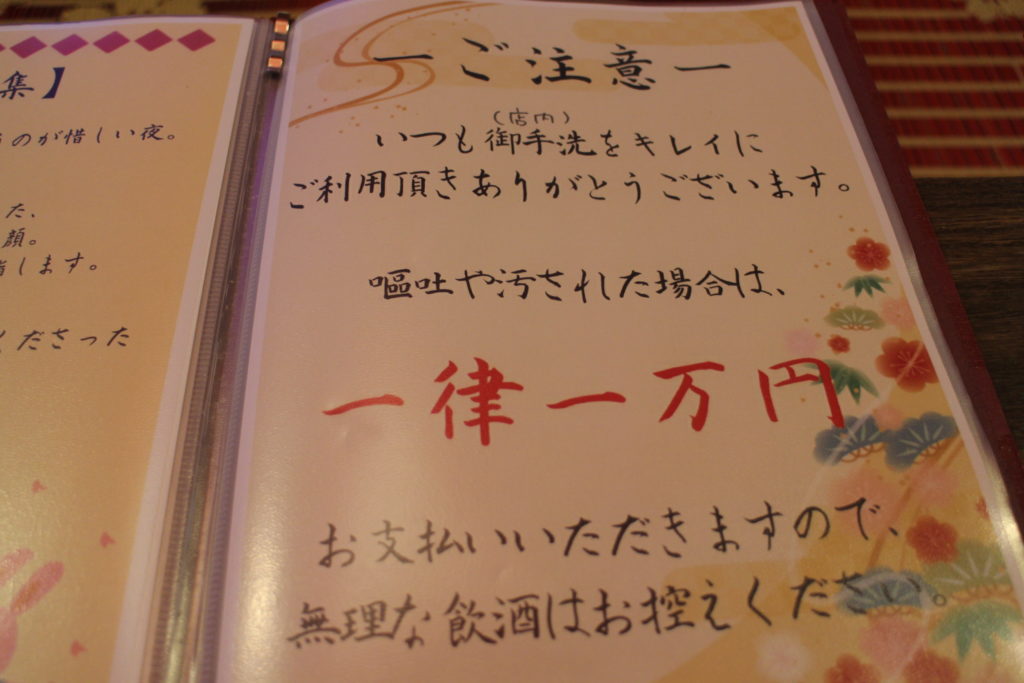 集】
のが惜しい夜。
た、
顔。
します。
くださった
ーご注意ー
(店内)
いつも御手洗をキレイに
ご利用頂きありがとうございます。
嘔吐や汚された場合は、
一律一万円
お支払いいただきますので、
無理な飲酒はお控えください。